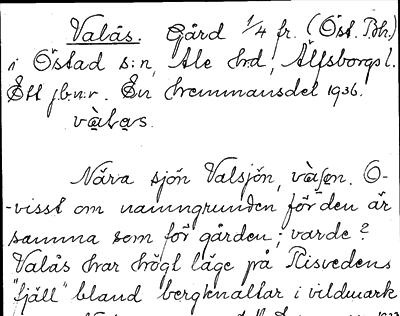 Valås. Gård 1/4 fr. (Öst. Bhr.)
i Östad s:n, Ale h:d, Älfsborgs l.
Ett j.b.n:r. En hemmansdel 1936.
Nära sjön Valsjön, O-
-visst om namngrunden för den är
samma som för gården; varde?
Valås har högt läge på Risvedens
"fjäll" bland bergknallar i vildmark